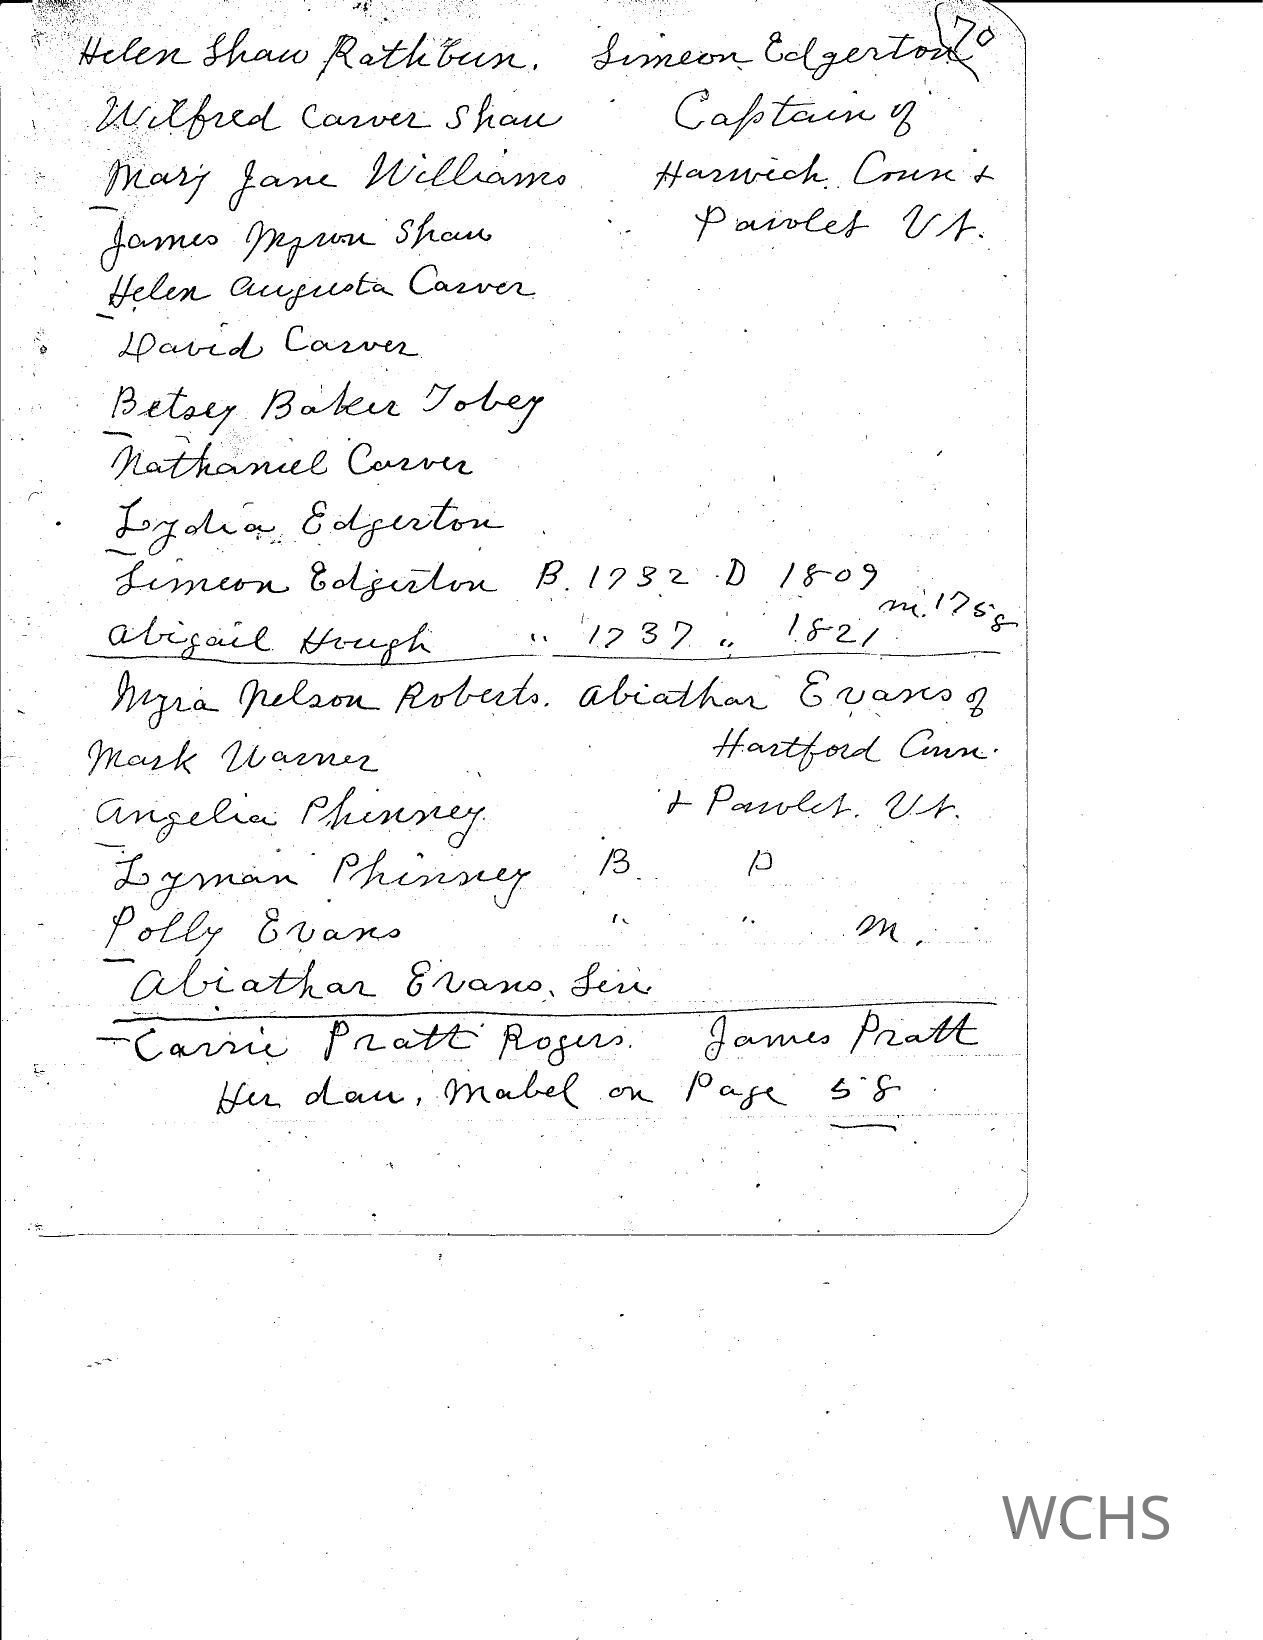 70
Helen Shaw Rathbun. Simeon Edgerton
Wilfred Carver Shaw Captain of
Mary Jane Williams Harwich Conn &
James Myron Shaw Pawlet Vt.
Helen Augusta Carver
David Carver
Betsey Baker Tobey
Nathaniel Carver
Lydia Edgerton
Simeon Edgerton B. 1732 D 1809
m. 1758
Abigail Hough " 1737 " 1821
Myra Nelson Roberts. Abiathar Evans of
Mark Warner Hartford Conn.
Angelia Phinney & Pawlet. Vt.
Lyman Phinney B. D
Polly Evans " " m.
Abiathar Evans, Sen
Carrie Pratt Rogers. James Pratt
Her dau, Mabel on Page 58
WCHS